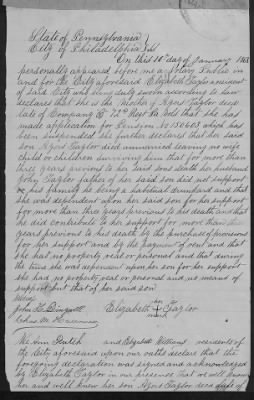 State of Pennsylvania
City of Philadelphia
On this 10th day of January
personally appeared before me a Notary Public in
and for the City aforesaid Elizabeth Taylor a resident
of said City who being duly sworn according to law
declares that she is the Mother of Taylor deed
late of Company 72d Regt Pa Vols that she has
made application for Pension No which has
been suspended she further declares that her said
son Taylor died unmarried leaving no wife
child or children surviving him that for more than
three years previous to her said sons death her husband
John Taylor father of her said son did not support
his family he being a habitual drunkard and that
she was dependent upon her said son for her support
for more than years previous to his death and that
he did contribute to her support for more than
years previous to his death by the purchase of provisions
for her support and by the payment of rent and that
she had no property real or personal and that during
the time she was dependent upon her son for her support
she had no property real or personal and no means of
support but that of her said son
John
Elizabeth her + mark Taylor
Chas M
We Ann and Elizabeth Williams residents of
the City aforesaid upon our oaths declare that the
foregoing declaration was signed and acknowledged
by Elizabeth Taylor in our presence that we well know
her and well knew her son Taylor deed late of